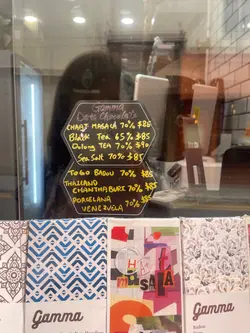 Gamma
Dark Chocolate
CHAAT MASALA 70% $85
Black Tea 65% $85
Oolong TEA 70% $90
Sea Salt 70% $85
TOGO BADOU 70% $85
THAILAND
CHANTHABURI 70% $85
PORCELANA
VENEZUELA 70% $85
gamma
CHAAT
MASALA
gamma
Gamma